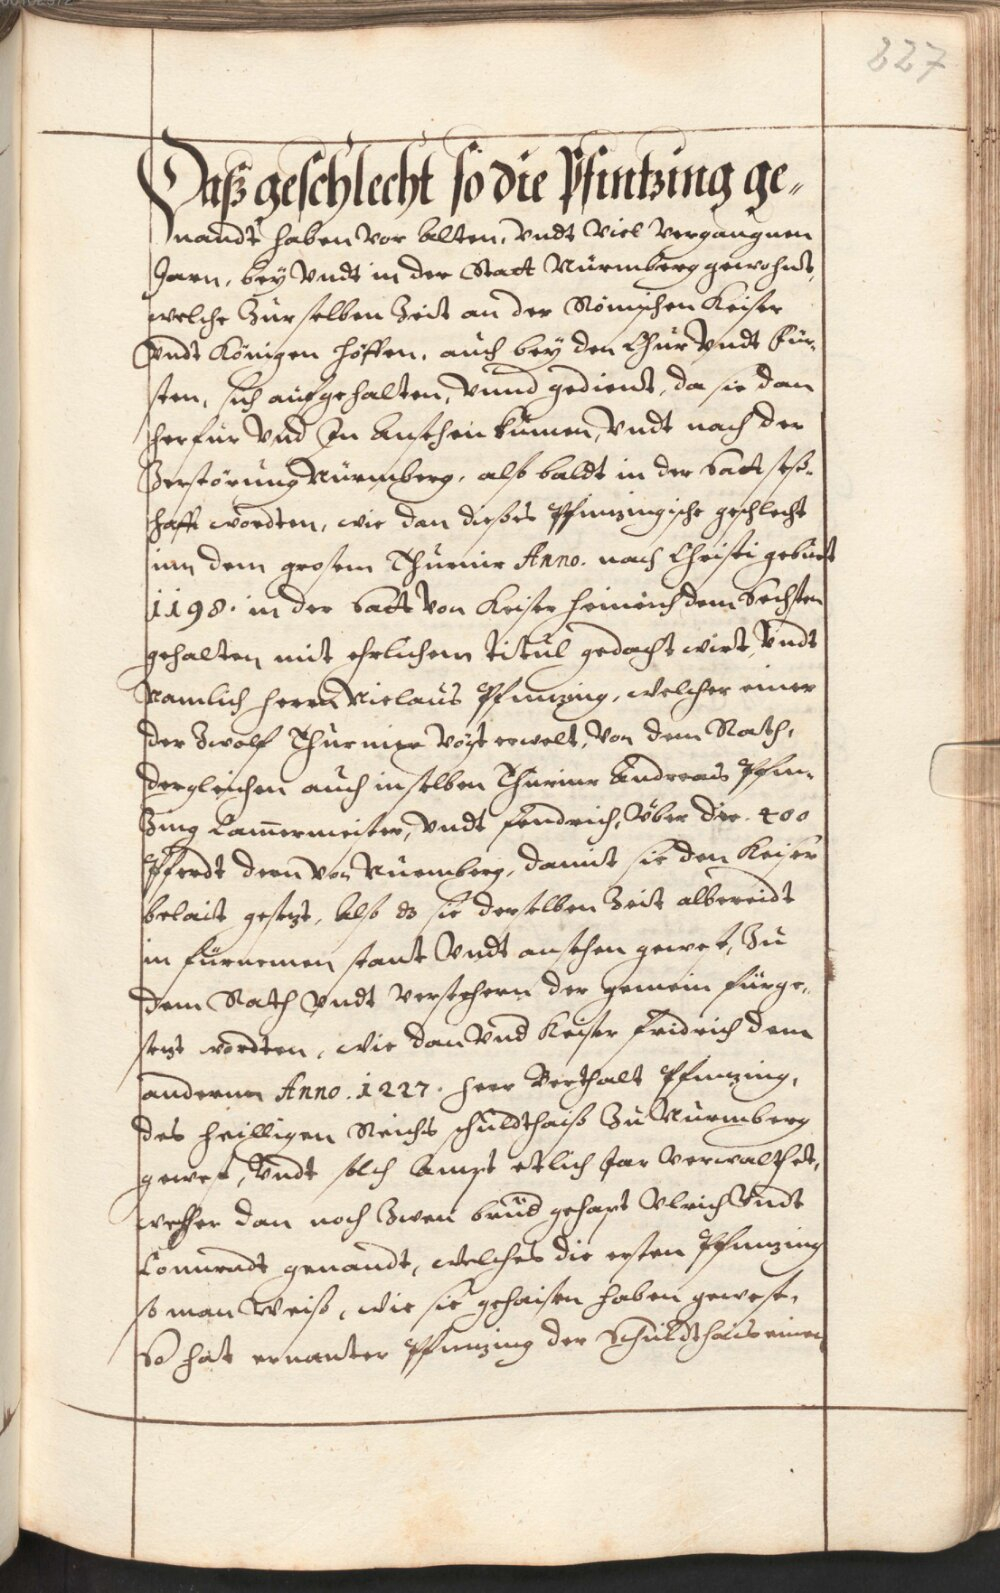 227
Daß geschlecht so die Pfintzing ge„
nandt haben vor alten, vndt viel vergangnen
Jarn, bey vndt in der Statt Nürmberg gewohnt,
welche Zur selben Zeit an der Römischen Keiser
vndt Königen höffen, auch bey den Chur vndt Für„
sten, sich aufgehalten, vnnd gedient, da sie dan
herfür vnd In Ansehen kumen, vndt nach der
Zerstörung Nürmberg, alß baldt in der Statt seß„
hafft wordten, wie dan dießes Pfinzingische geschlecht
inn dem grosem Thurnir Anno. nach Christi geburt
1198. in der Statt von Keiser Heinrich dem Sechsten
gehalten mit ehrlichem titul gedacht wirt, vndt
Namlich herrn Niclaus Pfinzing, welcher einer
der Zwölf Thurnier Vögt erwelt, von dem Rath,
dergleichen auch in selben Thurnir Andreas Pfin„
Zing Cammermeister, vndt fendrich, über die 400
Pferdt dern von Nürmberg, damit sie den Keiser
belait gesezt, Alß dz sie derselben Zeit albereidt
in fürnemen stant vndt ansehen gewest, Zu
dem Rath vndt verstehern der gemein fürge„
sezt wordten, wie dan vnd Keiser Fridrich dem
andernn Anno. 1227. herr Berthalt Pfinzing,
des heilligen Reichs schuldthaiß Zu Nürmberg
gewest, vndt solch Ampt etlich Jar verwalthet,
welcher dan noch Zwen brüd gehapt Vlrich vndt
Conradt genandt, welches die ersten Pfinzing
so man weiß, wie sie gehaisen haben gewest,
So hat ernanter Pfinzing der Schuldthais einen